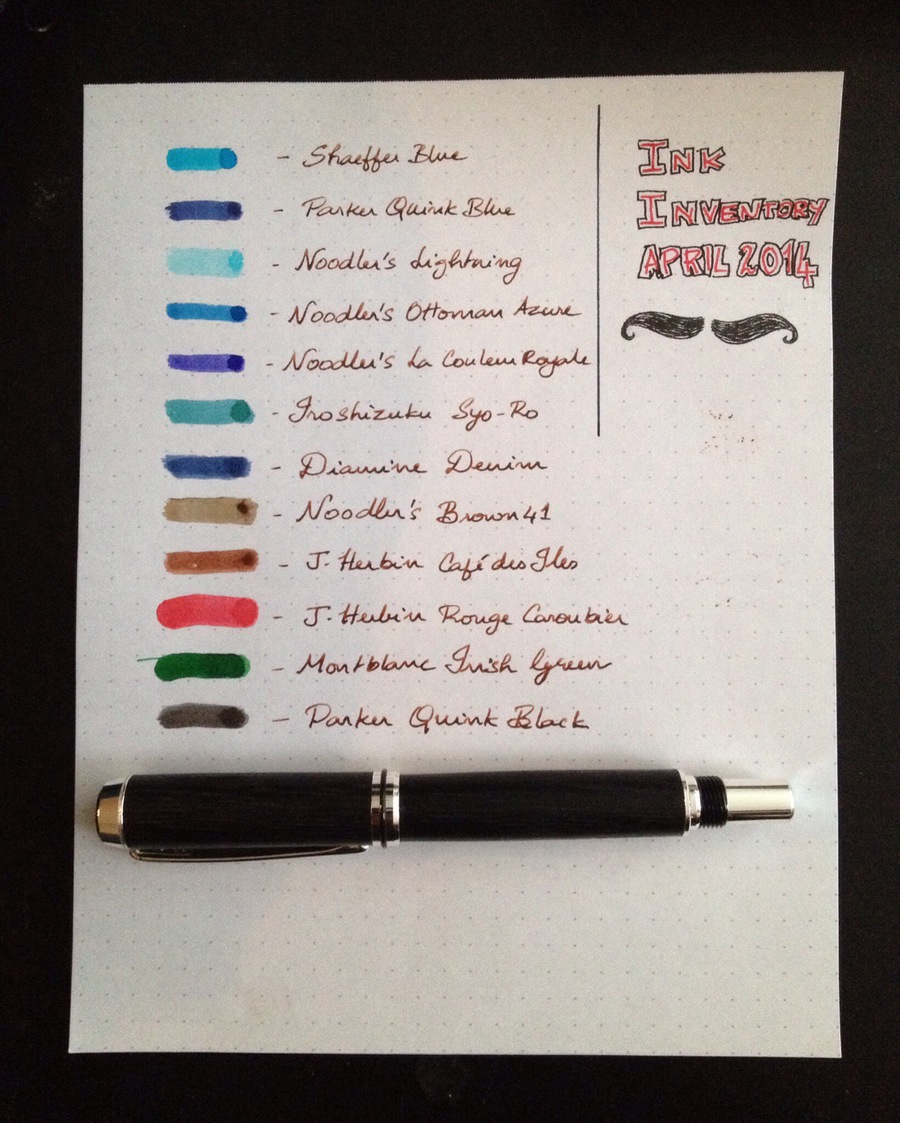 - Shaeffer Blue
- Parker Quink Blue
- Noodler's Lightning
- Noodler's Ottoman Azure
- Noodler's La Couleur Royale
- Iroshizuku Syo-Ro
- Diamine Denim
- Noodler's Brown 41
- J. Herbin Café des Iles
- J. Herbin Rouge Caroubier
- Montblanc Irish Green
- Parker Quink Black
INK
INVENTORY
APRIL 2014